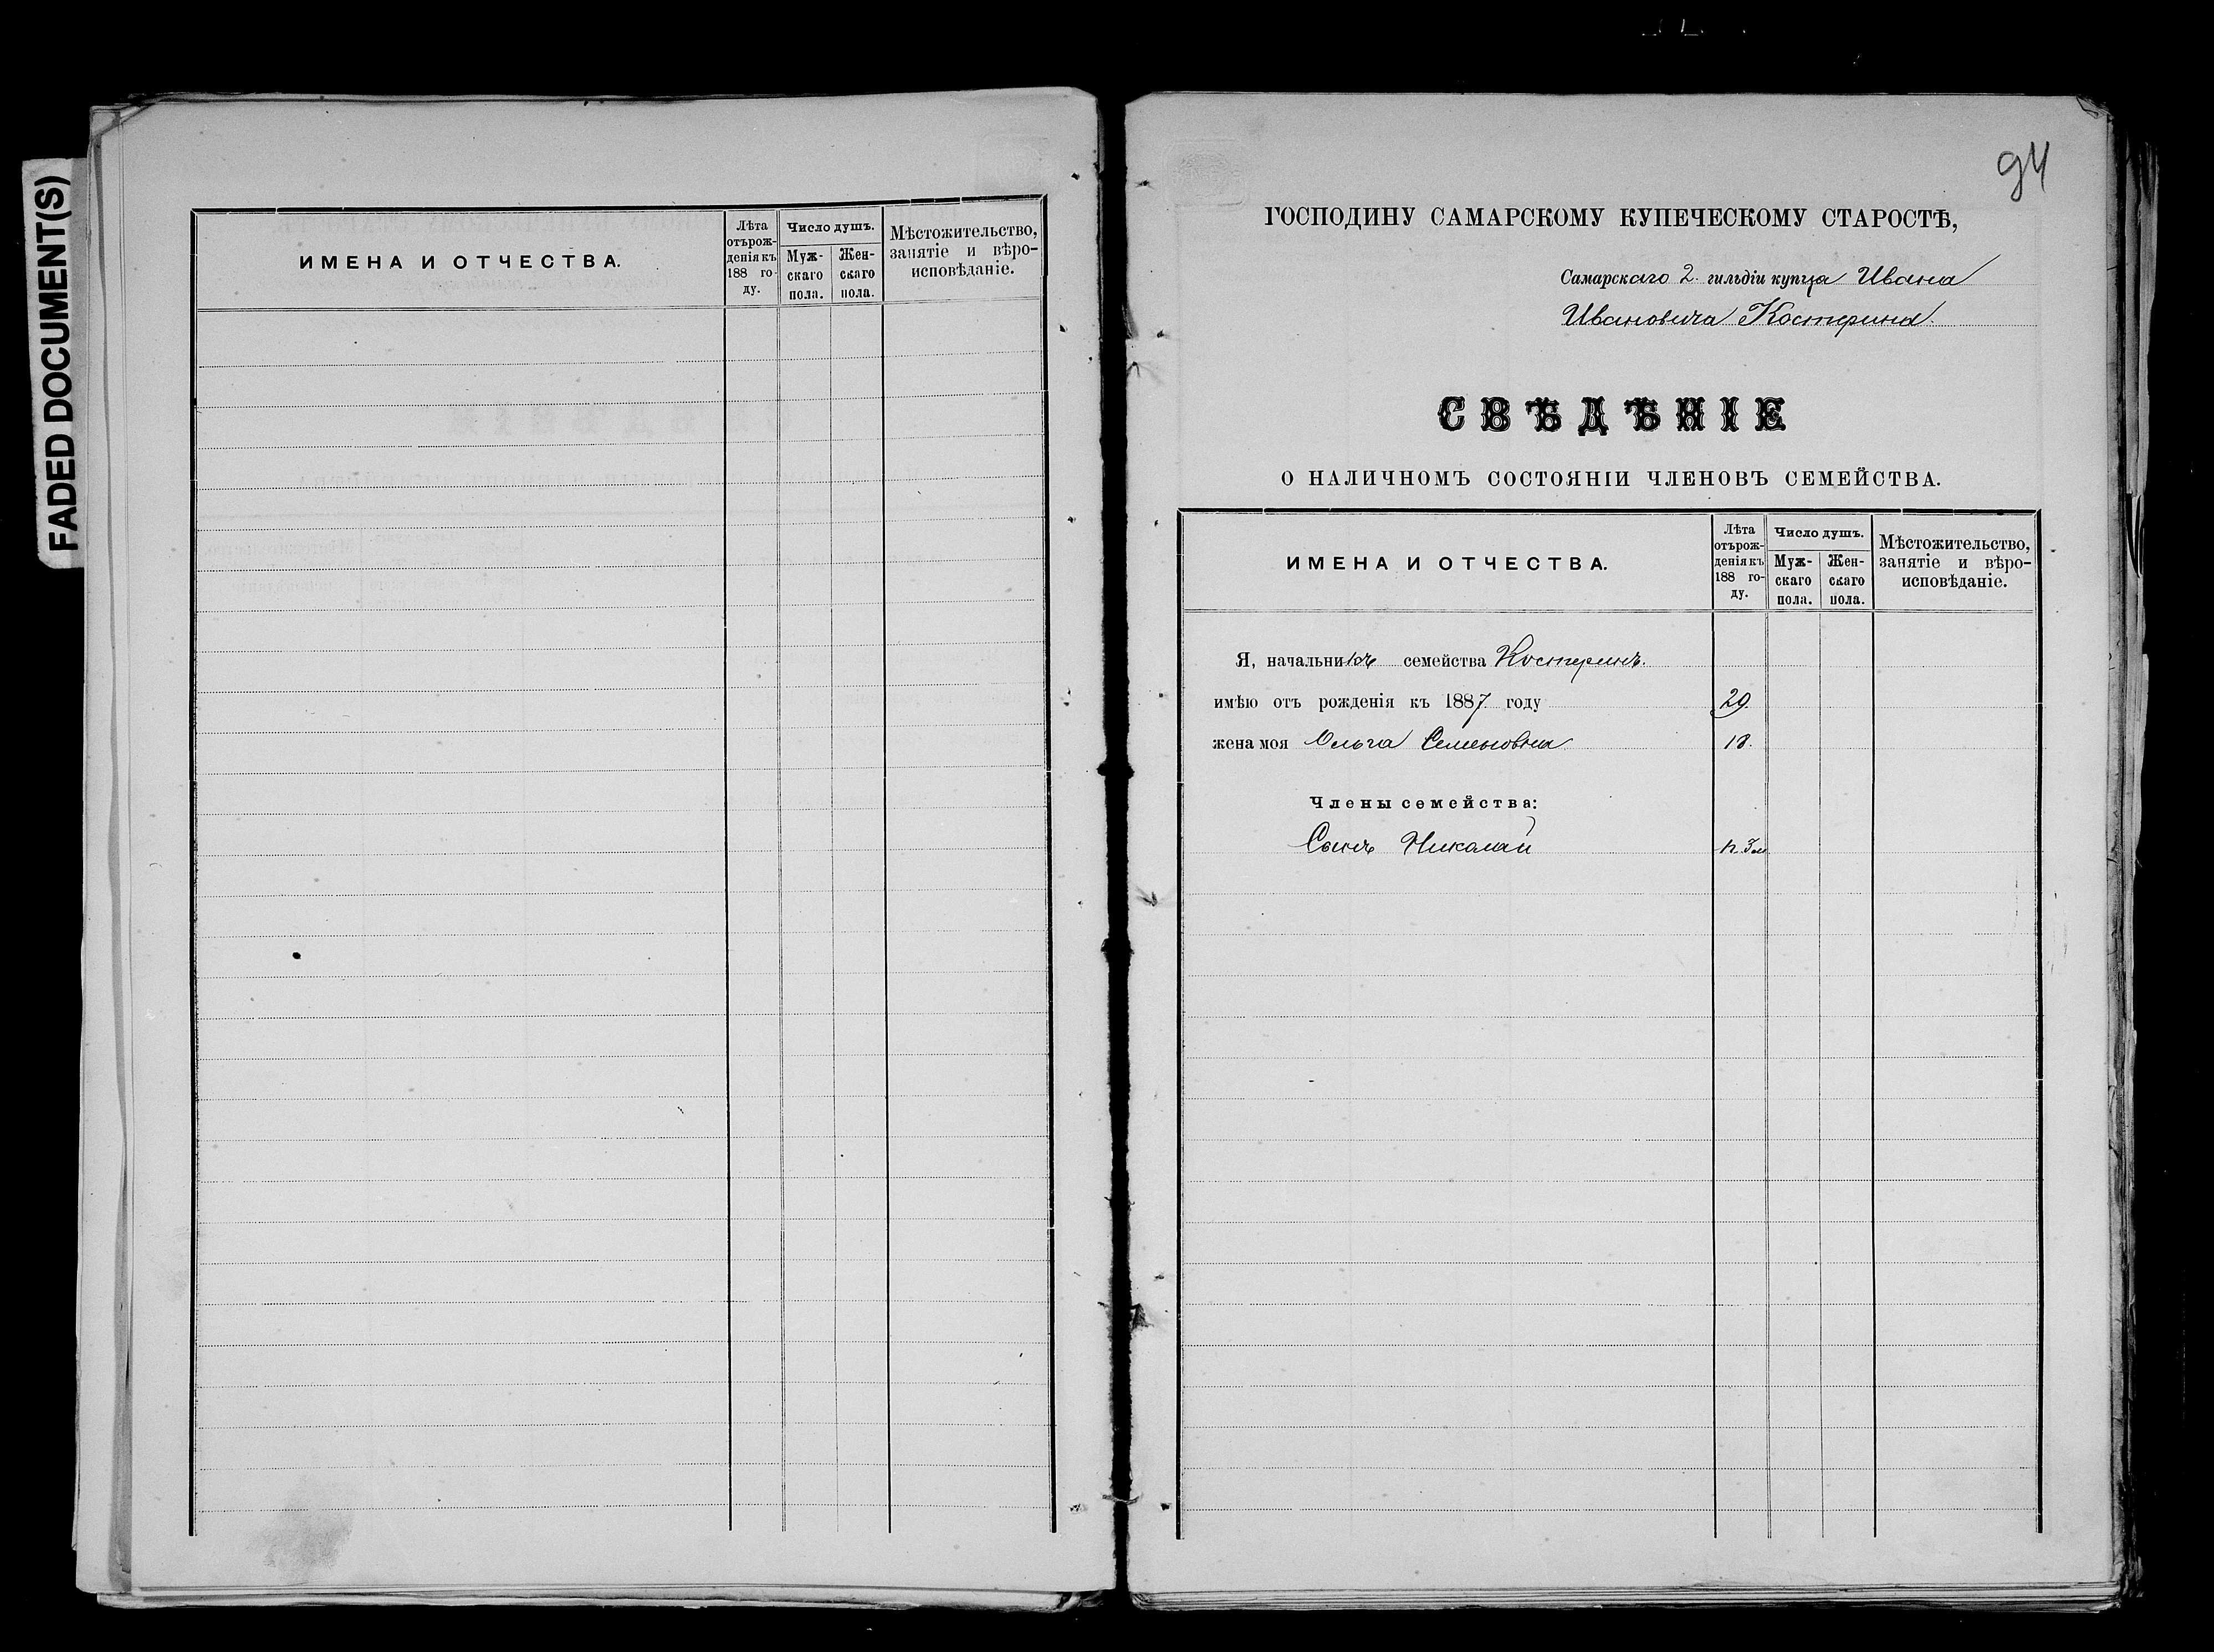 FADED DOCUMENT(S)
ИМЕНА И ОТЧЕСТВА.
Лѣта
отърож-
денія къ
188 го-
ду.
Число душъ.
Муж-
скаго
пола.
Жен-
скаго
пола.
Мѣстожительство,
занятіе и вѣро-
исповѣданіе.
94
ГОСПОДИНУ САМАРСКОМУ КУПЕЧЕСКОМУ СТАРОСТѢ,
Самарскаго 2. гильдіи купца Ивана
Ивановича Костерина.
СВѢДѢНІЕ
О НАЛИЧНОМЪ СОСТОЯНІИ ЧЛЕНОВЪ СЕМЕЙСТВА.
ИМЕНА И ОТЧЕСТВА.
Лѣта
отърож-
денія къ
188 го-
ду.
Число душъ.
Муж-
скаго
пола.
Жен-
скаго
пола.
Мѣстожительство,
занятіе и вѣро-
исповѣданіе.
Я, начальникъ семейства Костеринъ.
имѣю отъ рожденія къ 1887 году 29.
жена моя Ольга Семеновна 18.
Члены семейства:
Сынъ Николай 3 м